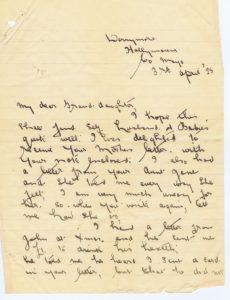 Co Mayo
3rd April
My dear Grand-daughter,
I hope this
finds self, husband & Babies
quite well. I was delighted to
receive your Mothers letter, with
your note enclosed. I also had
a letter from your Aunt
and she told me every way she
felt, I am very much uneasy for
her. So when you write again, let
me know how she is.
I had a letter from
John at Xmas, and he sent me
to drink his health.
he told me he hears I sent a card
in your letter, but that he did not